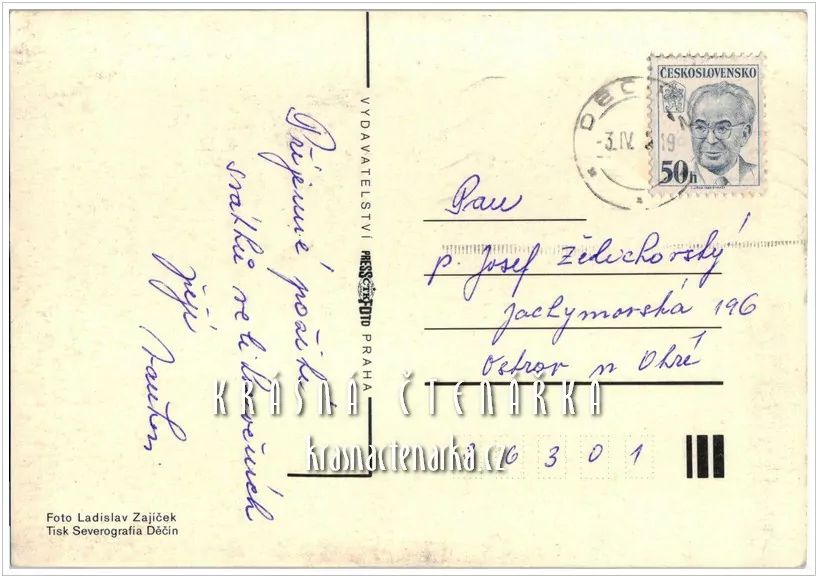 Příjemné prožití
svátků velikonočních
přejí
VYDAVATELSTVÍ PRESSFOTO PRAHA
ČTK
ČESKOSLOVENSKO
50h
DĚČÍN
-3.IV.
19
Pan
p. Josef Zdichovský
Jachymovská 196
Ostrov n Ohří
36301
KRÁSNÁ ČTENÁŘKA
krasnactenarka.cz
Foto Ladislav Zajíček
Tisk Severografia Děčín